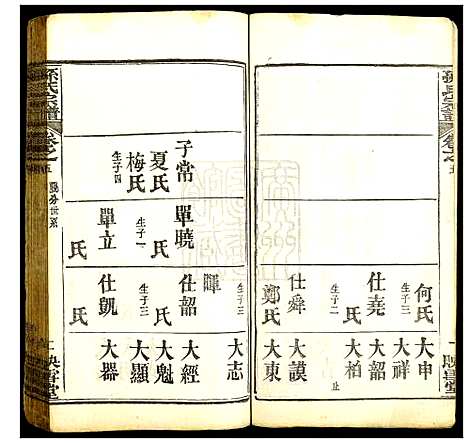 孫氏宗譜
卷之五
映雪堂
何氏
生子二
仕堯
生子二
仕舜
鄭氏
大申
大祥
大韶
大柏
止
大謨
大東
子常
夏氏
梅氏
生子四
單曉
氏
生子一
單立
氏
生子三
暉
仕韶
氏
生子三
仕凱
氏
大志
大經
大魁
大顯
大器
孫氏宗譜
卷之五
映雪堂